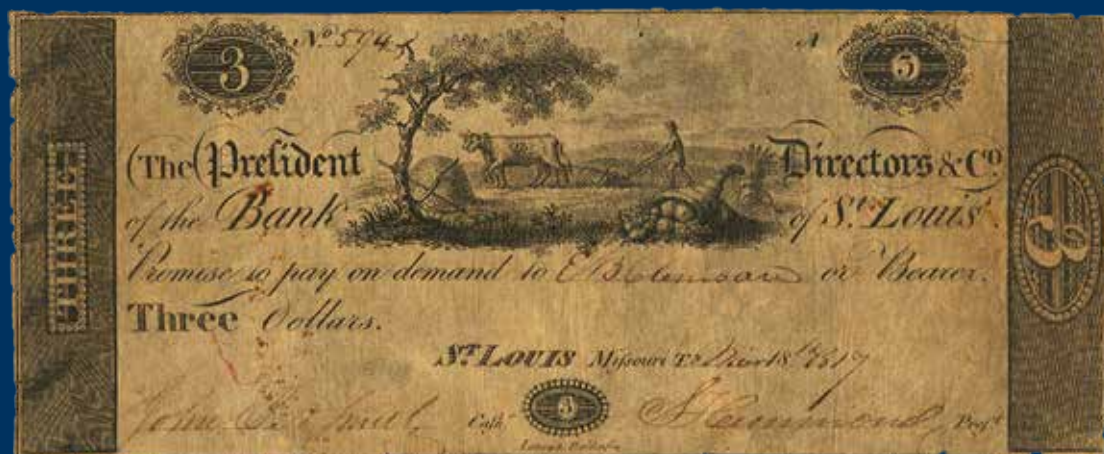 3 No 594 A 3
THREE
(The (President Directors & Co.
of the Bank of St. Louis.
Promise to pay on demand to E B Clemson or Bearer.
Three Dollars.
ST LOUIS Missouri Ty. 18 1817
John B. N. Smith Cash. 3 S Hammond Prest
3